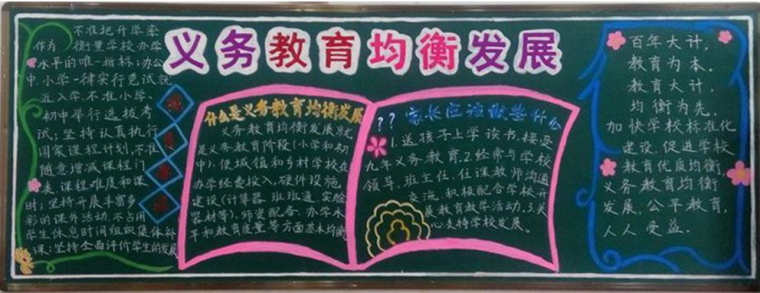 义务教育均衡发展
不准把升学率
作为衡量学校办学
水平的唯一指标;办公
中小学一律实行免试就
近入学,不准小学、
初中举行选拔考
试;坚持认真执行
国家课程计划,不准
随意增减课程门
类、课程难度和课
时;坚持开展丰富多
彩的课外活动,不占用
学生休息时间组织集体补
课;坚持全面评价学生的发展
什么是义务教育均衡发展
义务教育均衡发展就
是义务教育阶段(小学和初
中),使城镇和乡村学校在
办学经费投入、硬件设施、
建设(计算器、班班通、实验
器材等)、师资配备、办学水
平和教育质量等方面基本均衡
??家长应该做些什么
1.送孩子上学读书,接受
九年义务教育,2.经常与学校
领导、班主任、任课教师沟通
交流,积极配合学校开
展教育教学活动,3.关
心支持学校发展。
百年大计,
教育为本。
教育大计,
均衡为先。
加快学校标准化
建设,促进学校
教育优质均衡
义务教育均衡
发展,公平教育,
人人受益。